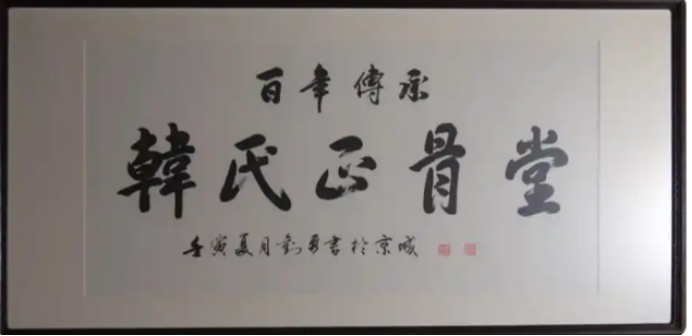 百年傳承
韓氏正骨堂
壬寅夏月劉書於京城